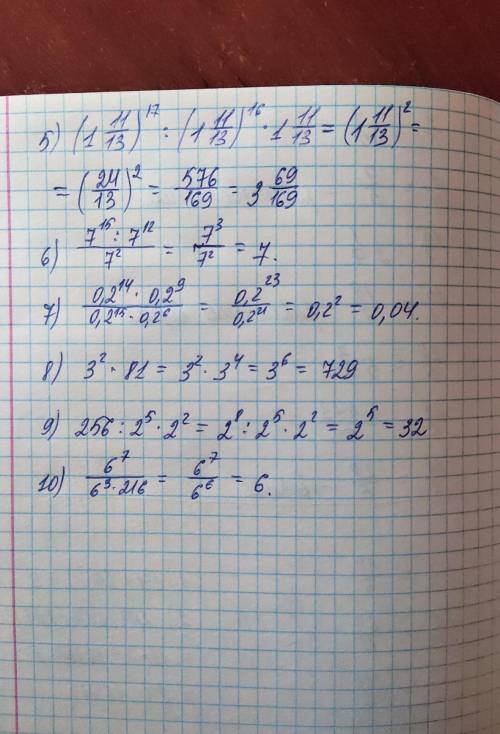 5) (1 11/13)^17 : (1 11/13)^16 · 1 11/13 = (1 11/13)^2 =
= (24/13)^2 = 576/169 = 3 69/169
6) (7^15 : 7^12)/7^2 = 7^3/7^2 = 7.
7) (0,2^14 · 0,2^9)/(0,2^15 · 0,2^6) = 0,2^23/0,2^21 = 0,2^2 = 0,04.
8) 3^2 · 81 = 3^2 · 3^4 = 3^6 = 729
9) 256 : 2^5 · 2^2 = 2^8 : 2^5 · 2^2 = 2^5 = 32
10) 6^7/(6^3 · 216) = 6^7/6^6 = 6.